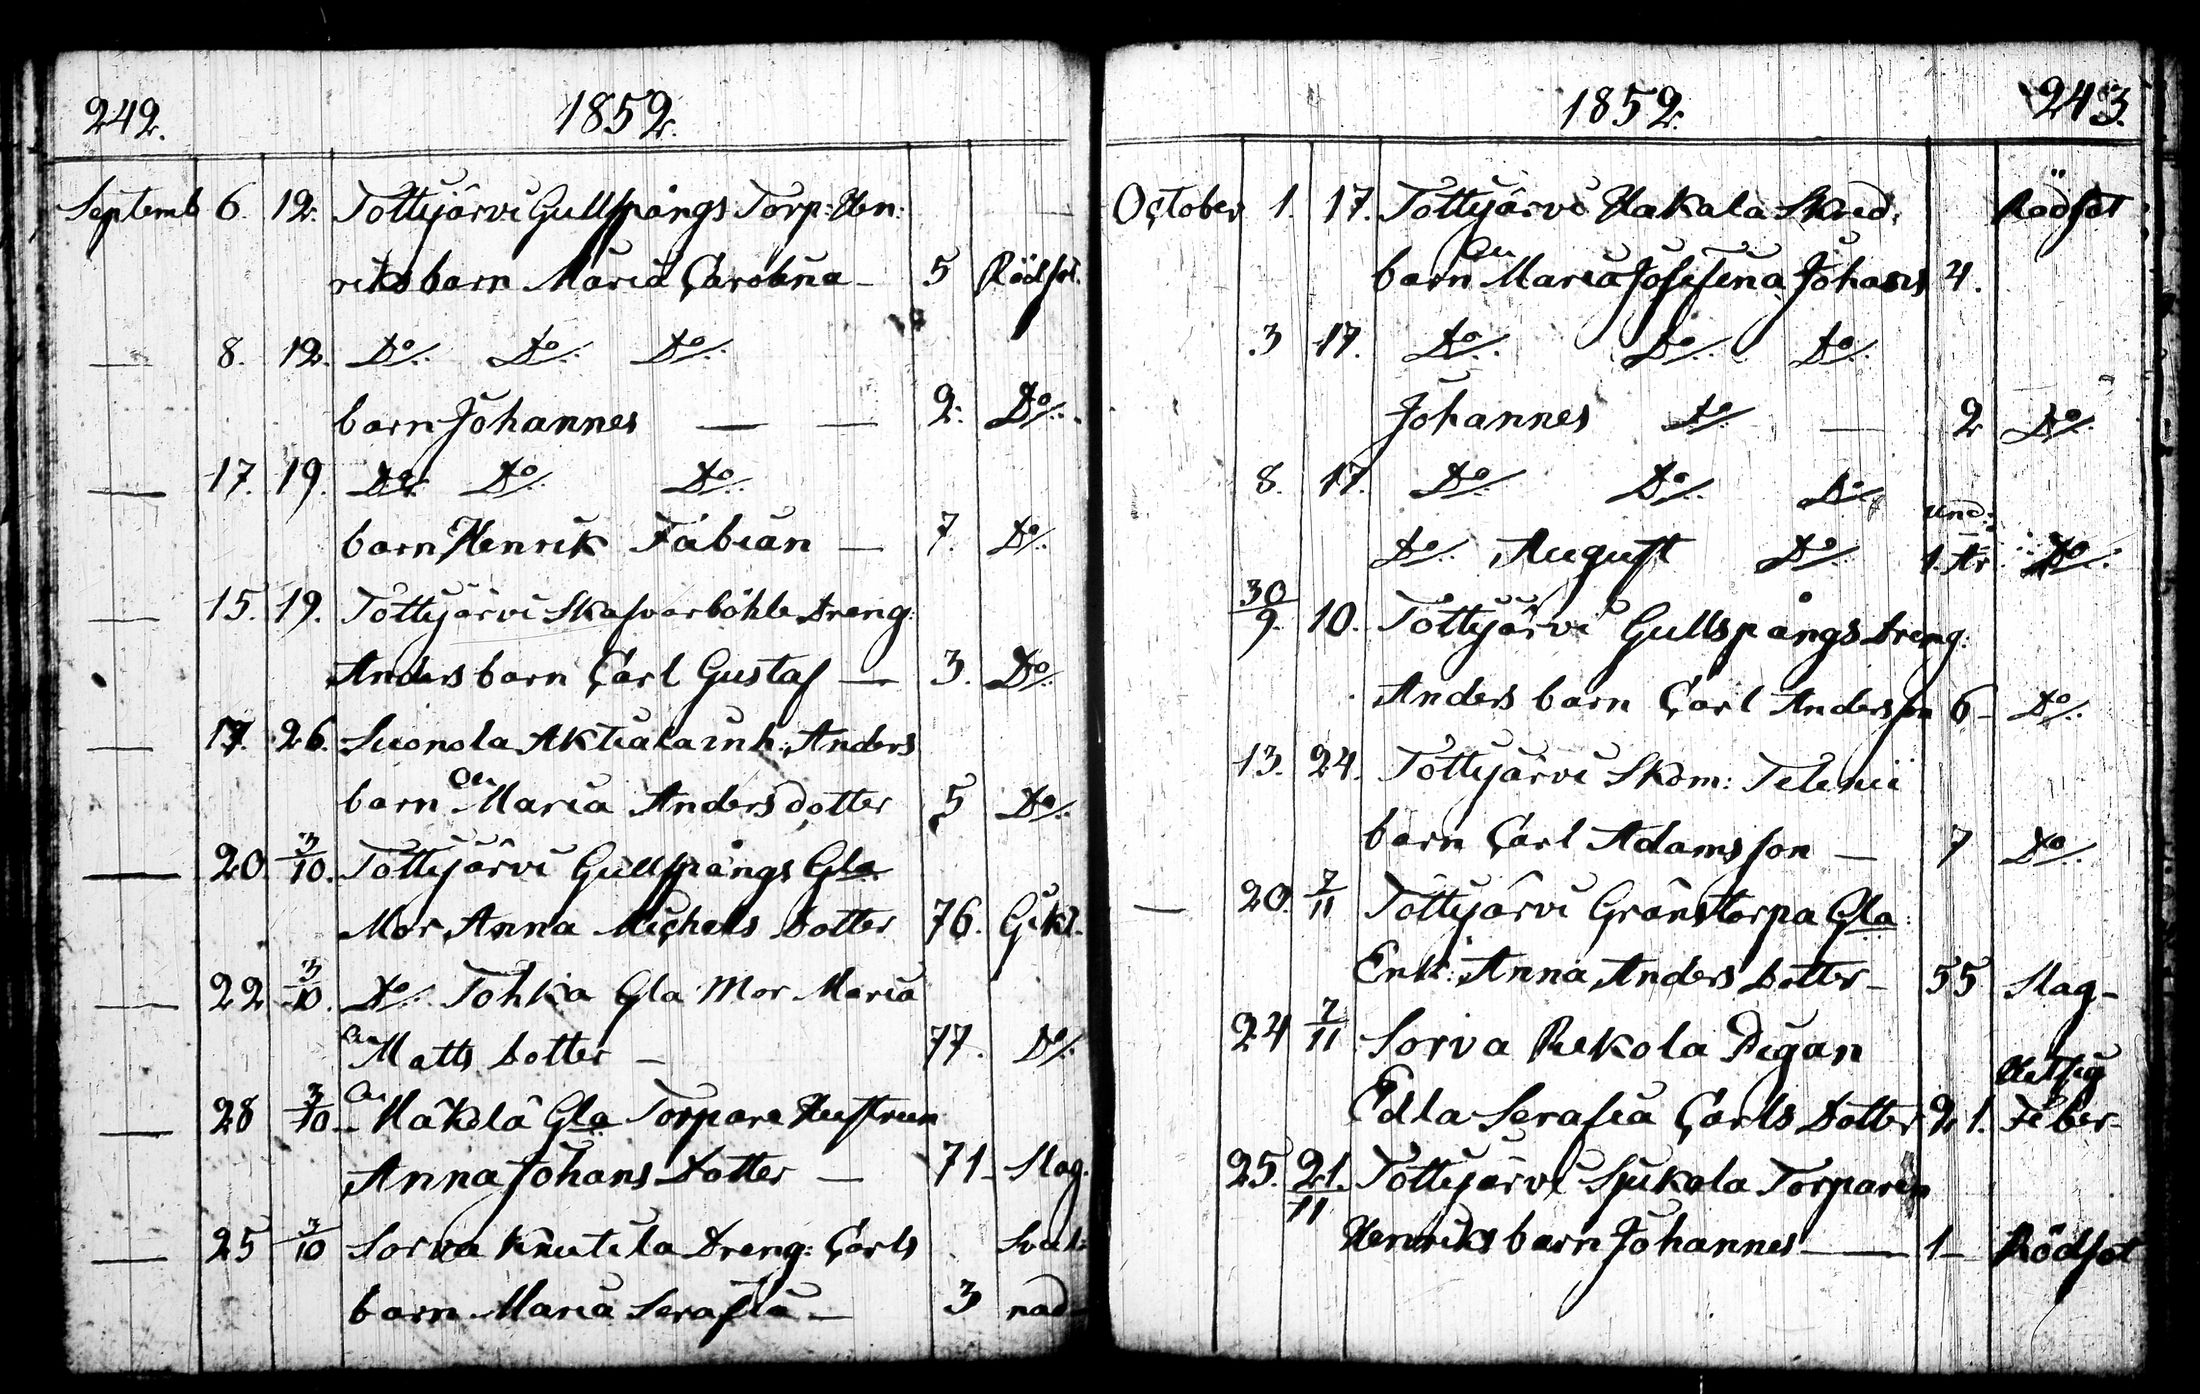 242. 1852.
Septemb 6. 12. Tottijärvi Gullspångs Torp: Hen:
riks barn Maria Carolina – 5 Rödsot.
— 8. 12. Do/. Do/. Do/.
barn Johannes — — 2. Do/.
— 17. 19. Do/. Do/. Do/.
barn Henrik Fabian — 7. Do/.
— 15. 19. Tottijärvi Skafvarböhle Dreng:
Anders barn Carl Gustaf — 3. Do/.
— 17. 26. Suonola Aktiala inh: Anders
barn Maria Andersdotter 5 Do/.
— 20 3/10. Tottijärvi Gullspångs Gla
Mor Anna Michels Dotter 76. Gikt.
— 22 3/10. Do/. Tohka Gla Mor Maria
Matts Dotter – 77. Do/.
— 28 3/10 Häkölä Gla Torpare Hustrun
Anna Johans Dotter — 71 Slag.
— 25 3/10 Sorva Knutila Dreng: Carls
barn Maria Serafia – 3 nad
1852. 243.
October 1. 17. Tottijärvi Hakala Skred: Rödsot
barn Maria Josefina Johans 4.
3 17. Do/. Do/. Do/.
Johannes Do/. — 2 Do/.
8. 17. Do/. Do/. Do/.
und:
Do/. August Do/. 1. År Do/.
30/9. 10. Tottijärvi Gullspångs Dreng:
Anders barn Carl Andersson 6 – Do/.
13. 24. Tottijärvi Skom: Telenii
barn Carl Adamsson — 7 Do/.
— 20. 7/11 Tottijärvi Gränstorpa Gla
Enk: Anna Anders Dotter – 55 Slag –
24 7/11 Sorva Rekola Pigan
Hetsig
Edla Serafia Carls Dotter 21. Feber –
25. 21./11 Tottijärvi Sjukola Torparen
Henriks barn Johannes — 1 – Rödsot